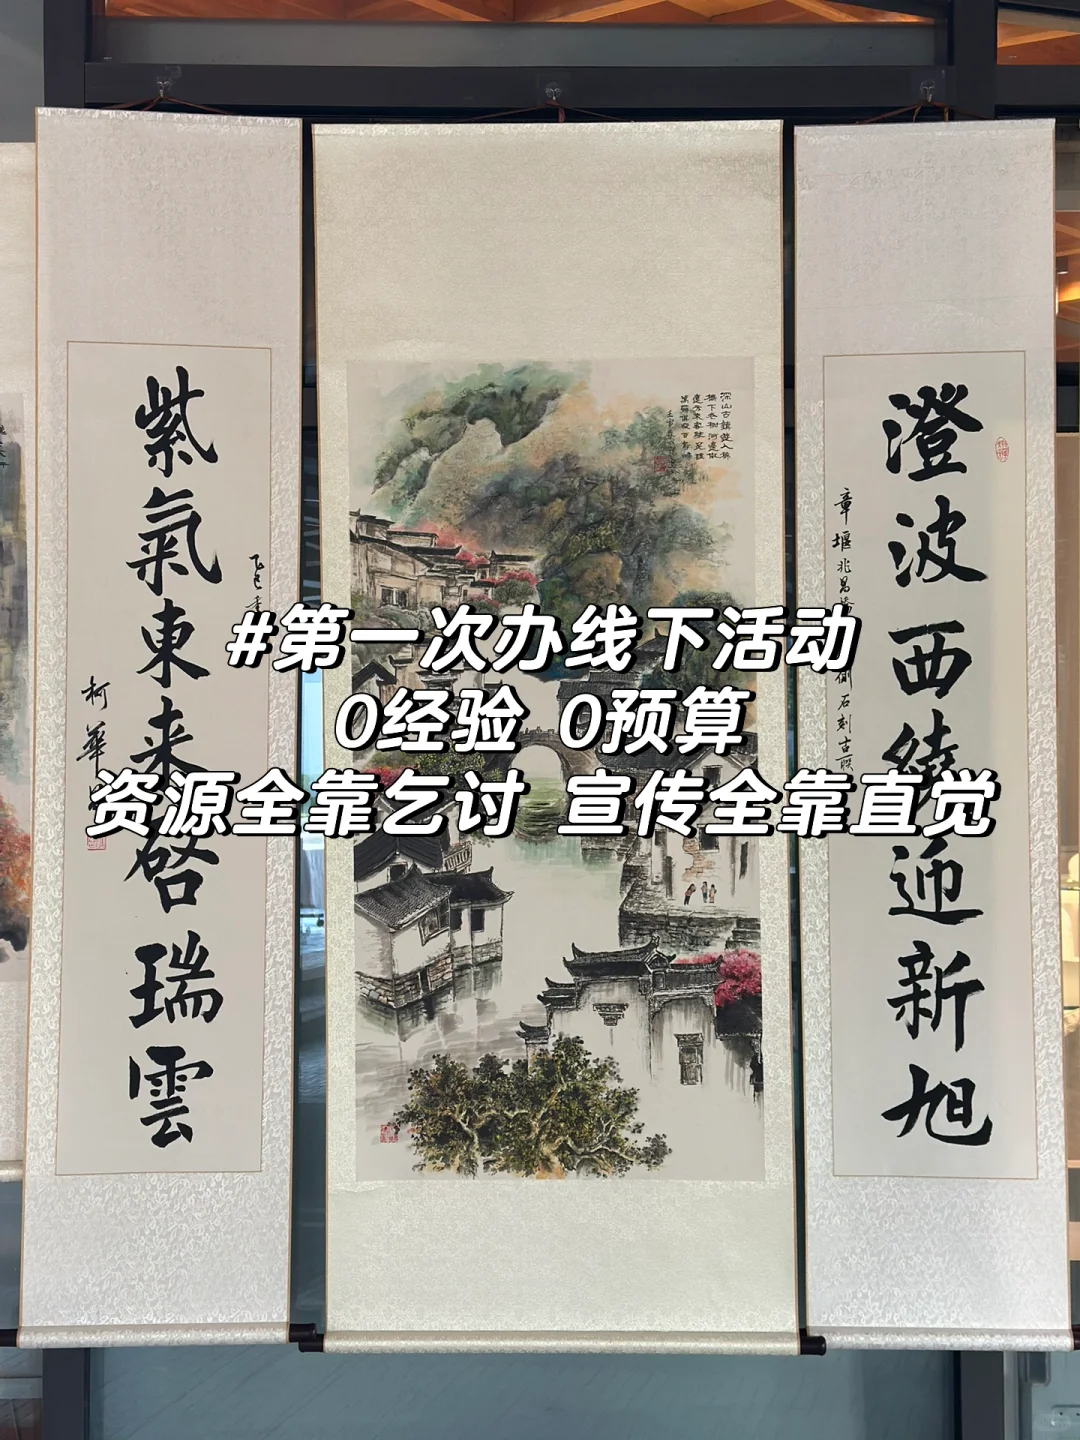 #第一次办线下活动
0经验 0预算
资源全靠乞讨 宣传全靠直觉
澄波西繞迎新旭
章堰兆昌橋側石刻古联
紫氣東来啓瑞雲
乙巳
柯華
深山古鎮